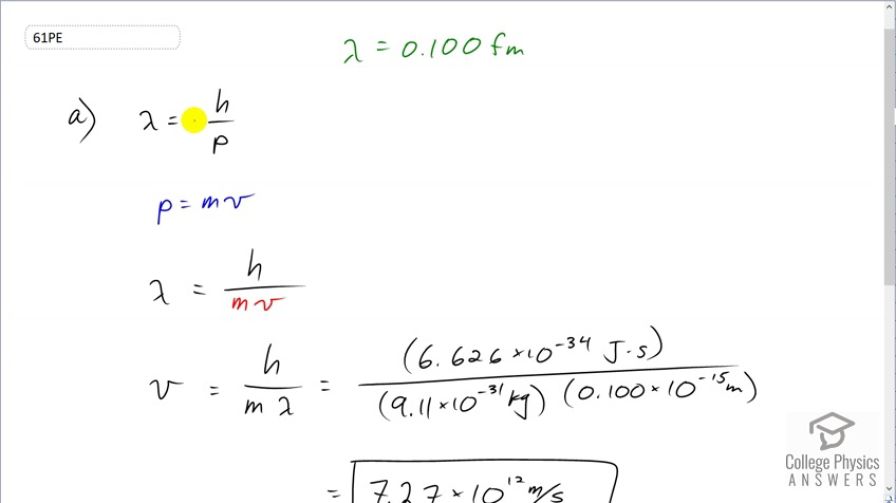 61PE
λ = 0.100 fm
a) λ = h/p
p = mv
λ = h/mv
v = h/mλ = (6.626×10⁻³⁴ J·s)/(9.11×10⁻³¹ kg)(0.100×10⁻¹⁵ m)
= 7.27×10¹² m/s
College Physics
ANSWERS